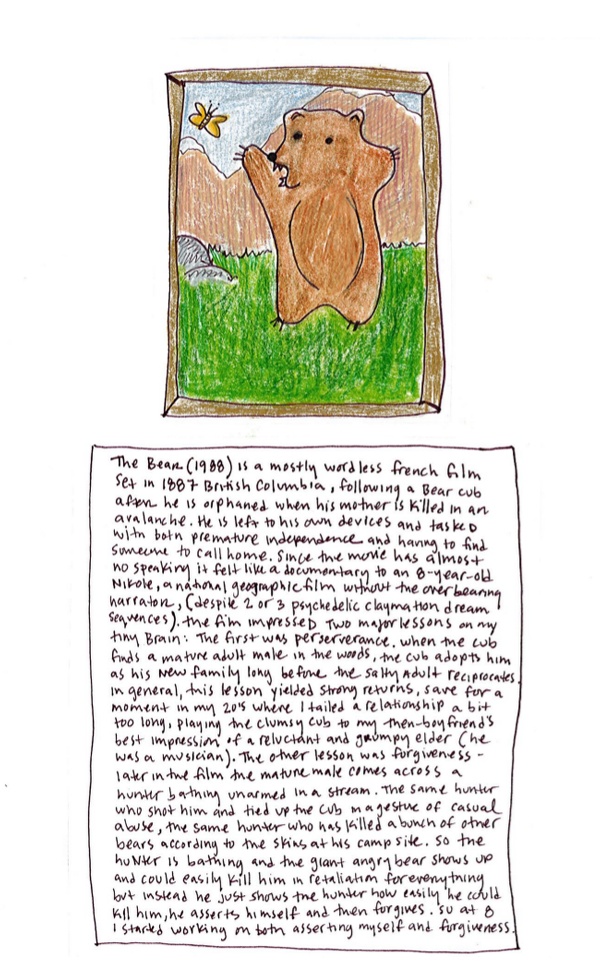 The Bear (1988) is a mostly wordless french film
set in 1887 British Columbia, following a Bear cub
after he is orphaned when his mother is killed in an
avalanche. He is left to his own devices and tasked
with both premature independence and having to find
someone to call home. Since the movie has almost
no speaking it felt like a documentary to an 8-year-old
Nikole, a national geographic film without the overbearing
narrator, (despite 2 or 3 psychedelic claymation dream
sequences). The film impressed two major lessons on my
tiny Brain: The first was perserverance. when the cub
finds a mature adult male in the woods, the cub adopts him
as his new family long before the salty adult reciprocates.
In general, this lesson yielded strong returns, save for a
moment in my 20's where I tailed a relationship a bit
too long, playing the clumsy cub to my then-boyfriend's
best impression of a reluctant and grumpy elder (he
was a musician). The other lesson was forgiveness -
later in the film the mature male comes across a
hunter bathing unarmed in a stream. The same hunter
who shot him and tied up the cub in a gestue of casual
abuse, the same hunter who has killed a bunch of other
bears according to the skins at his camp site. So the
hunter is bathing and the giant angry bear shows up
and could easily kill him in retaliation for everything
but instead he just shows the hunter how easily he could
kill him, he asserts himself and then forgives. So at 8
I started working on both asserting myself and forgiveness.